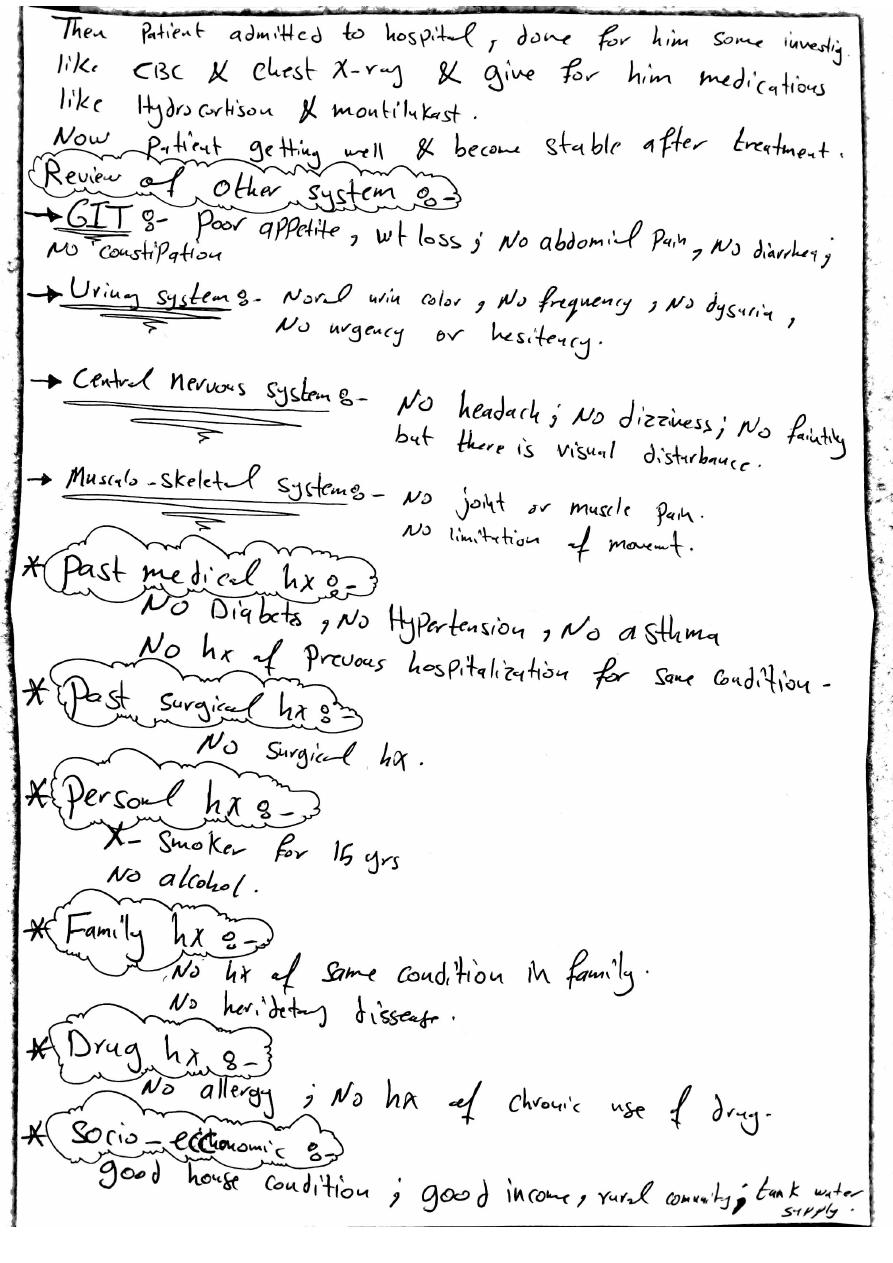 Then Patient admitted to hospital, done for him some investig.
like CBC & chest X-ray & give for him medications
like Hydrocortison & montilukast.
Now Patient getting well & become stable after treatment.
Review of other system :-
→ GIT :- Poor appetite, wt loss; No abdomial Pain, No diarrhea;
No constipation
→ Urinay system :- Noral urin color, No frequency, No dysuria,
No urgency or hesitency.
→ Central nervous system :- No headach; No dizziness; No faintily
but there is visual disturbance.
→ Musculo-skeletal system :- No joint or muscle pain.
No limitation of movemt.
* Past medical hx :-
No Diabets, No Hypertension, No asthma
No hx of Prevous hospitalization for same condition-
* Past surgical hx :-
No surgical hx.
* Personl hx :-
X- Smoker for 15 yrs
No alcohol.
* Family hx :-
No hx of same condition in family.
No heridetary dissease.
* Drug hx :-
No allergy; No hx of chronic use of drug-
* Socio-economic :-
good house condition; good income, rural comunity; tank water
supply.